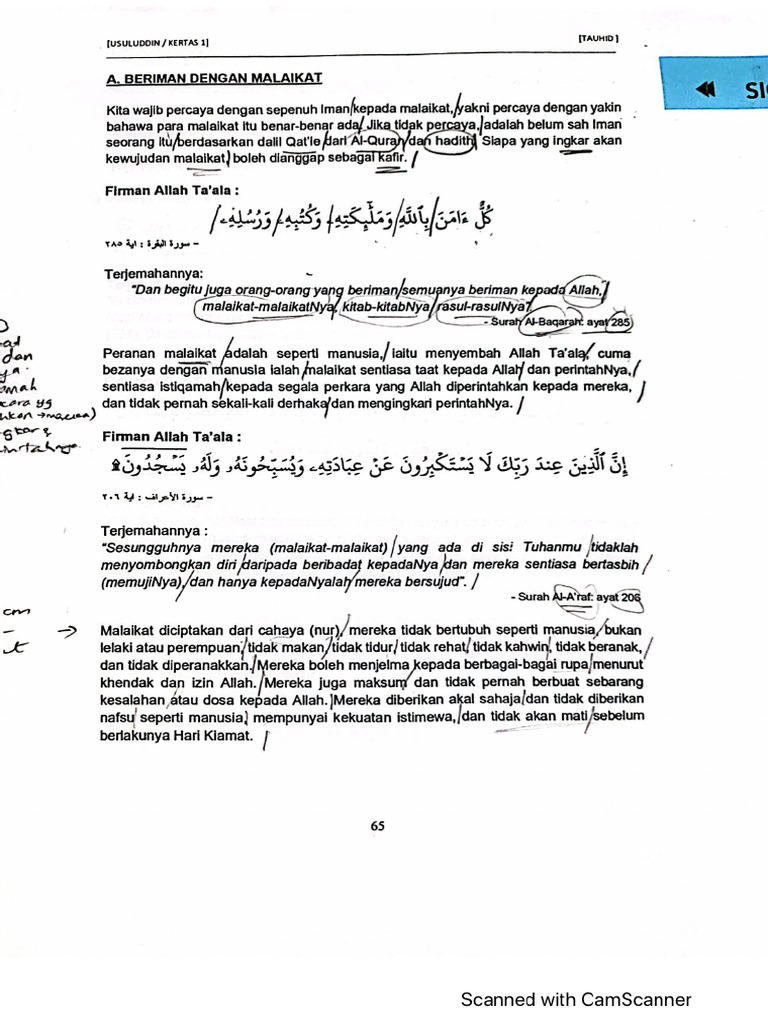 [USULUDDIN / KERTAS 1]
[TAUHID]
A. BERIMAN DENGAN MALAIKAT
Kita wajib percaya dengan sepenuh Iman kepada malaikat, yakni percaya dengan yakin
bahawa para malaikat itu benar-benar ada. Jika tidak percaya, adalah belum sah Iman
seorang itu berdasarkan dalil Qat'ie dari Al-Quran dan hadith. Siapa yang ingkar akan
kewujudan malaikat, boleh dianggap sebagai kafir.
Firman Allah Ta'ala :
كُلٌّ ءَامَنَ بِٱللَّهِ وَمَلَٰٓئِكَتِهِۦ وَكُتُبِهِۦ وَرُسُلِهِۦ
– سورة البقرة : اية ٢٨٥
Terjemahannya:
"Dan begitu juga orang-orang yang beriman semuanya beriman kepada Allah,
malaikat-malaikatNya, kitab-kitabNya, rasul-rasulNya".
- Surah Al-Baqarah: ayat 285
Peranan malaikat adalah seperti manusia, iaitu menyembah Allah Ta'ala, cuma
bezanya dengan manusia ialah malaikat sentiasa taat kepada Allah dan perintahNya,
sentiasa istiqamah kepada segala perkara yang Allah diperintahkan kepada mereka,
dan tidak pernah sekali-kali derhaka dan mengingkari perintahNya.
Firman Allah Ta'ala :
إِنَّ ٱلَّذِينَ عِندَ رَبِّكَ لَا يَسْتَكْبِرُونَ عَنْ عِبَادَتِهِۦ وَيُسَبِّحُونَهُۥ وَلَهُۥ يَسْجُدُونَ ۩
– سورة الأعراف : اية ٢٠٦
Terjemahannya :
"Sesungguhnya mereka (malaikat-malaikat) yang ada di sisi Tuhanmu tidaklah
menyombongkan diri daripada beribadat kepadaNya dan mereka sentiasa bertasbih
(memujiNya), dan hanya kepadaNyalah mereka bersujud".
- Surah Al-A'raf: ayat 206
Malaikat diciptakan dari cahaya (nur), mereka tidak bertubuh seperti manusia, bukan
lelaki atau perempuan, tidak makan, tidak tidur, tidak rehat, tidak kahwin, tidak beranak,
dan tidak diperanakkan. Mereka boleh menjelma kepada berbagai-bagai rupa menurut
khendak dan izin Allah. Mereka juga maksum dan tidak pernah berbuat sebarang
kesalahan atau dosa kepada Allah. Mereka diberikan akal sahaja dan tidak diberikan
nafsu seperti manusia, mempunyai kekuatan istimewa, dan tidak akan mati sebelum
berlakunya Hari Kiamat.
65
Scanned with CamScanner